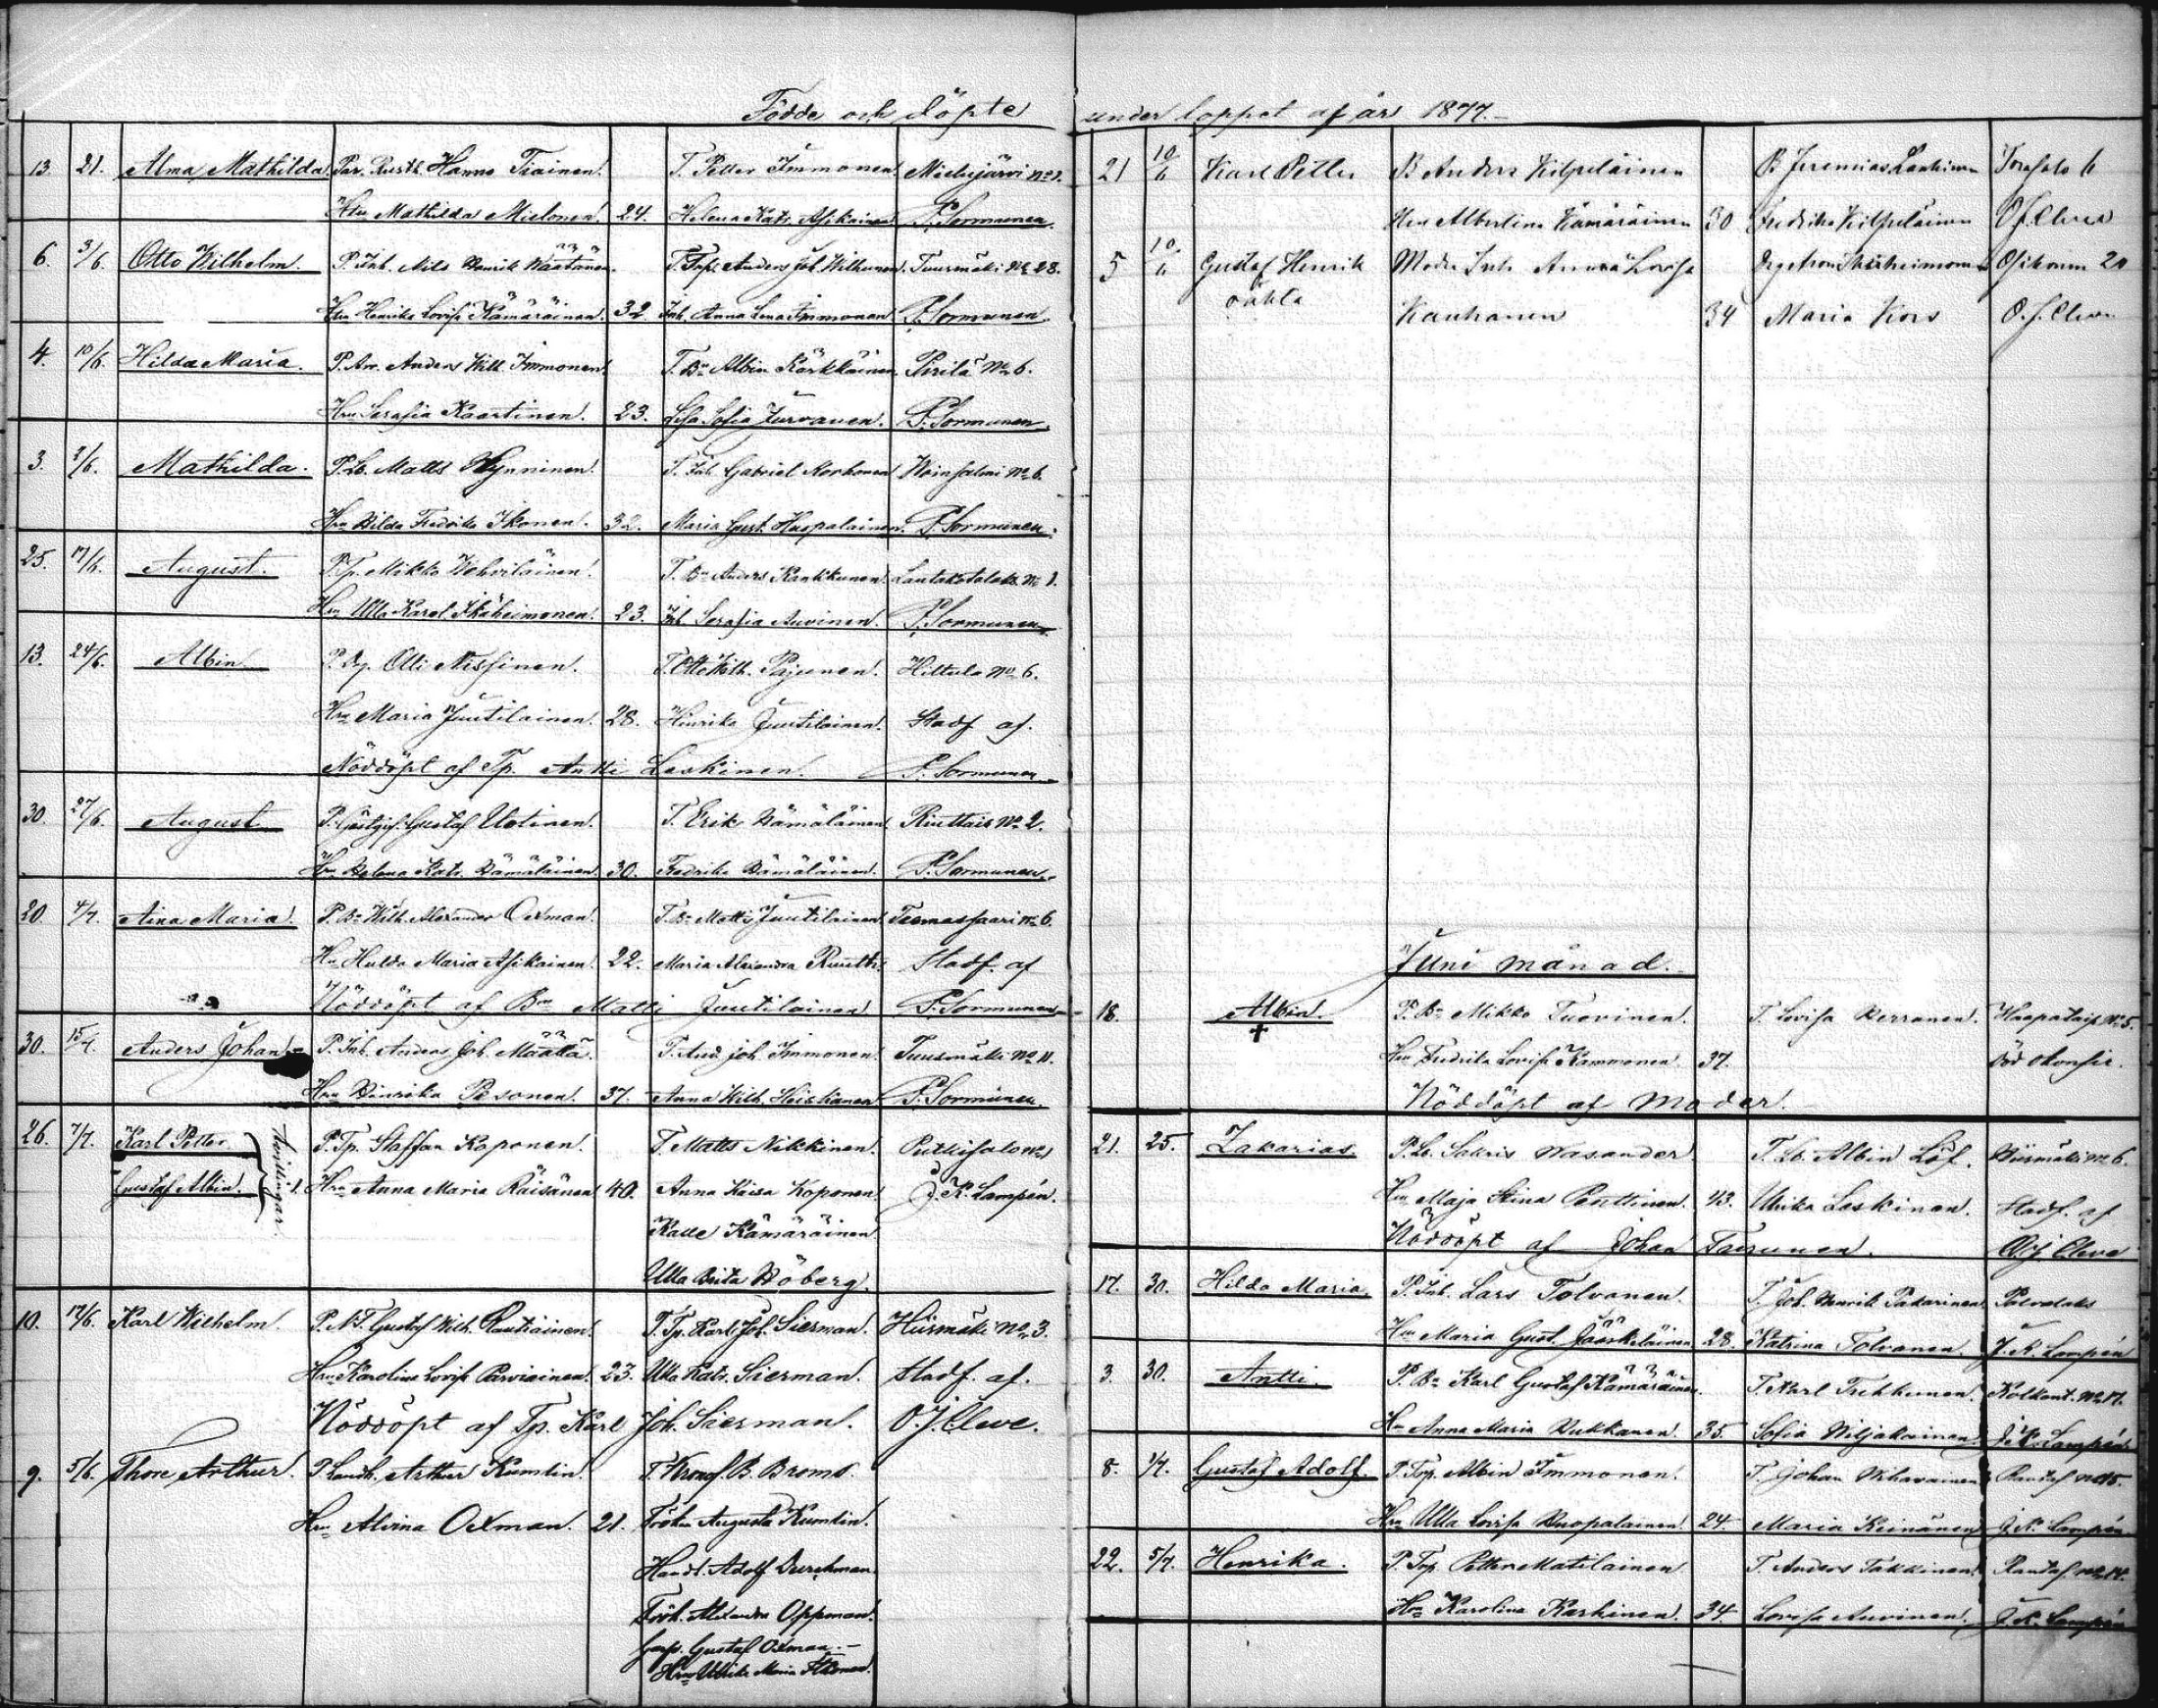 Födde och döpte under loppet af år 1877.
13. 21. Alma Mathilda. Par. Rusth. Hanno Tiainen. T. Petter Immonen Mielujärvi No 1.
Hu Mathilda Mielonen. 24. Helena Katr. Asikainen P. Sormunen.
6. 3/6. Otto Wilhelm. P. Inh. Nils Henrik Väätänen. T. Torp. Anders Joh. Wilkunen. Tuusmäki No 28.
Hru Henrika Lovisa Kämäräinen. 32. Inh. Anna Lena Immonen P. Sormunen
4. 10/6. Hilda Maria. P. Arr. Anders Will. Immonen. T. Bn Albin Kärkkäinen Pirilä No 6.
Hru Serafia Kaartinen. 23. Lisa Sofia Turvanen. P. Sormunen.
3. 3/6. Mathilda. P. Lb. Matts Hynninen. T. Inh. Gabriel Korhonen Woinsalmi No 6.
Hru Hilda Fredrika Ikonen. 32. Maria Gust. Huopalainen. P. Sormunen.
25. 17/6. August. P. Tp. Mikko Wehviläinen. T. Bn Anders Kankkunen. Lautakotalaks. No 1.
Hru Ulla Karol. Ikäheimonen. 23. Inh Serafia Auvinen. P. Sormunen.
13. 24/6. Albin P. Dg. Olli Nissinen. T. Otto Wilh. Pajunen. Hiltula No 6.
Hru Maria Juutilainen. 28. Hinrika Juutilainen. Stadf af.
Nöddöpt af Tp. Antti Leskinen. P. Sormunen
30. 27/6. August P. Gästgif. Gustaf Uotinen. T. Erik Hämäläinen Riuttais No 2.
Hru Helena Katr. Hämäläinen 30. Fredrika Hämäläinen. P. Sormunen.
20. 4/7. Aina Maria. P. Bn Wilh. Alexander Oxman. T. Bn Matts Juutilainen Teemassaari No 6.
Hu Hulda Maria Asikainen. 22. Maria Alexandra Ruuth. Stadf. af
Nöddöpt af Bn Matti Juutilainen P. Sormunen
30. 15/7. Anders Johan P. Inh. Anders Joh. Määttä. T. And. Joh. Immonen. Tuusmäki No 11.
Hru Hinrika Pesonen. 37. Anna Wilh. Heiskanen P. Sormunen.
26. 7/7. Karl Petter. P. Tp. Staffan Koponen. T. Matts Nikkinen. Putkisalo No 1
Gustaf Albin. Tvillingar. Hru Anna Maria Räisänen 40. Anna Kaisa Koponen. J. K. Lampén.
Kalle Kämäräinen
Ulla Brita Höberg.
10. 17/6. Karl Wilhelm. P. N.T. Gustaf Wilh. Rautiainen. T. Tp. Karl Joh. Sierman. Hiismäki No 3.
Hru Karolina Lovisa Parviainen. 23. Ulla Katr. Sierman. Stadf. af.
Nöddöpt af Tp. Karl Joh. Sierman. O. J. Cleve.
9. 5/6. Thore Arthur. P. Landh. Arthur Kumlin. T. Kronof. B. Broms.
Hru Alvina Oxman. 21. Frök. Augusta Kumlin.
Handl. Adolf Durchman
Frök. Alexandra Oppman.
Gustaf Oxman.
Hru Ulrika Maria
21 10/6 Karl Petter B Anders Kilpeläinen B. Jeremias 6
Hru Albertina Kämäräinen 30 Fredrika Kilpeläinen O. J. Cleve
5 10/6 Gustaf Henrik Modr. Inh. Anna Lovisa Ikäheimonen Osikonm 20
oäkta Kauhanen 34 Maria Kors O. J. Cleve
Juni månad.
18. Albin. P. Bn Mikko Tuovinen. T. Lovisa Kerranen. Haapataip. No 5.
Hru Fredrika Lovisa Kammonen 37. Död okonfir.
Nöddöpt af Moder.
21. 25. Zakarias P. Lb. Sakris Wasander T. Lb. Albin Löf. Hiismäki No 6.
Hru Maja Stina Penttinen. 43. Ulrika Leskinen. Stadf. af
Nöddöpt af Johan Tarunen. O. J. Cleve
17. 30. Hilda Maria P. Inh. Lars Tolvanen. T. Joh. Henrik Pakarinen Polvelaks
Hru Maria Gust. Jääskeläinen 28. Katrina Tolvanen. J. K. Lampén
3. 30. Antti. P. Bn Karl Gustaf Kämäräinen. T. Karl Tuhkunen. Kolkont. No 17.
Hru Anna Maria Kukkanen. 35. Sofia Wiljakainen. J. K. Lampén
8. 1/7. Gustaf Adolf. P. Tp. Albin Immonen. T. Johan Wihavainen Rantas No 15.
Hru Ulla Lovisa Huopalainen 24. Maria Keinänen J. K. Lampén
22. 5/7. Henrika. P. Tp. Petter Matilainen T. Anders Takkinen. Rantas No 14.
Hru Karolina Karhinen. 34. Lovisa Auvinen. J. K. Lampén